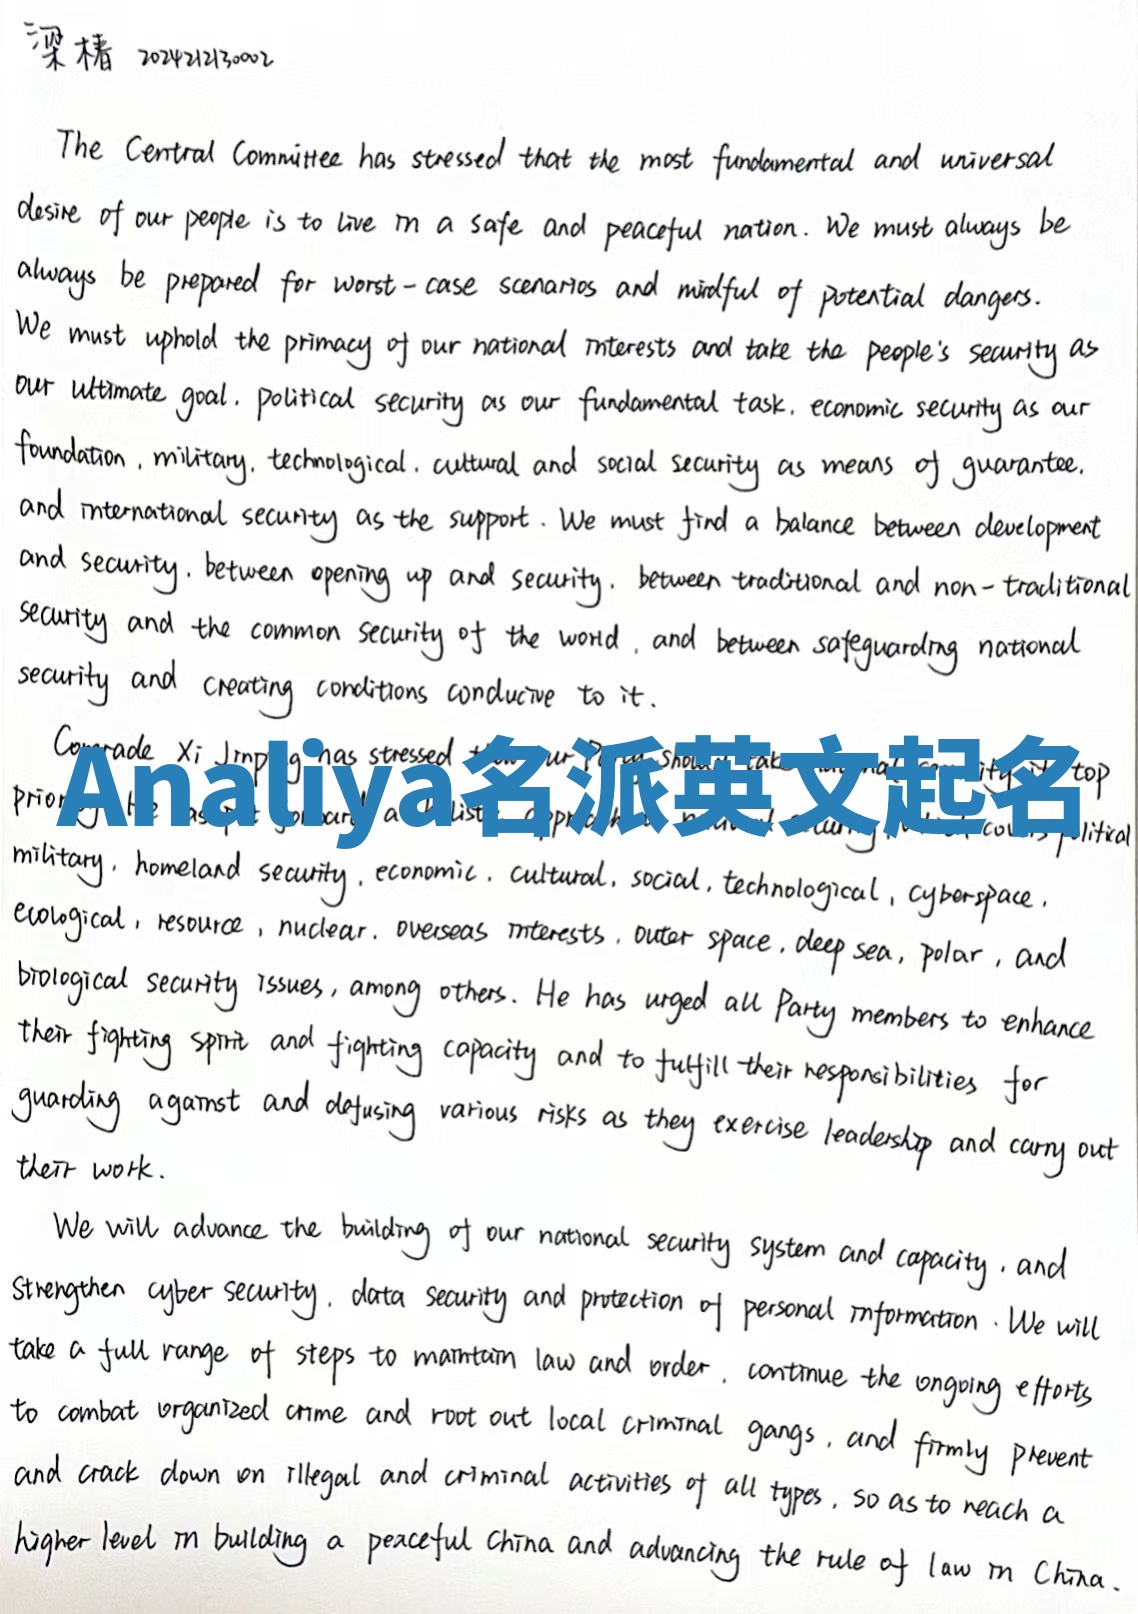 梁椿 2024212130002
The Central Committee has stressed that the most fundamental and universal
desire of our people is to live in a safe and peaceful nation. We must always be
always be prepared for worst-case scenarios and mindful of potential dangers.
We must uphold the primacy of our national interests and take the people's security as
our ultimate goal, political security as our fundamental task, economic security as our
foundation, military, technological, cultural and social security as means of guarantee,
and international security as the support. We must find a balance between development
and security, between opening up and security, between traditional and non-traditional
security and the common security of the world, and between safeguarding national
security and creating conditions conducive to it.
Comrade Xi Jinping has stressed top
Analiya名派英文起名
political
military, homeland security, economic, cultural, social, technological, cyberspace,
ecological, resource, nuclear, overseas interests, outer space, deep sea, polar, and
biological security issues, among others. He has urged all Party members to enhance
their fighting spirit and fighting capacity and to fulfill their responsibilities for
guarding against and defusing various risks as they exercise leadership and carry out
their work.
We will advance the building of our national security system and capacity, and
strengthen cyber security, data security and protection of personal information. We will
take a full range of steps to maintain law and order, continue the ongoing efforts
to combat organized crime and root out local criminal gangs, and firmly prevent
and crack down on illegal and criminal activities of all types, so as to reach a
higher level in building a peaceful China and advancing the rule of law in China.